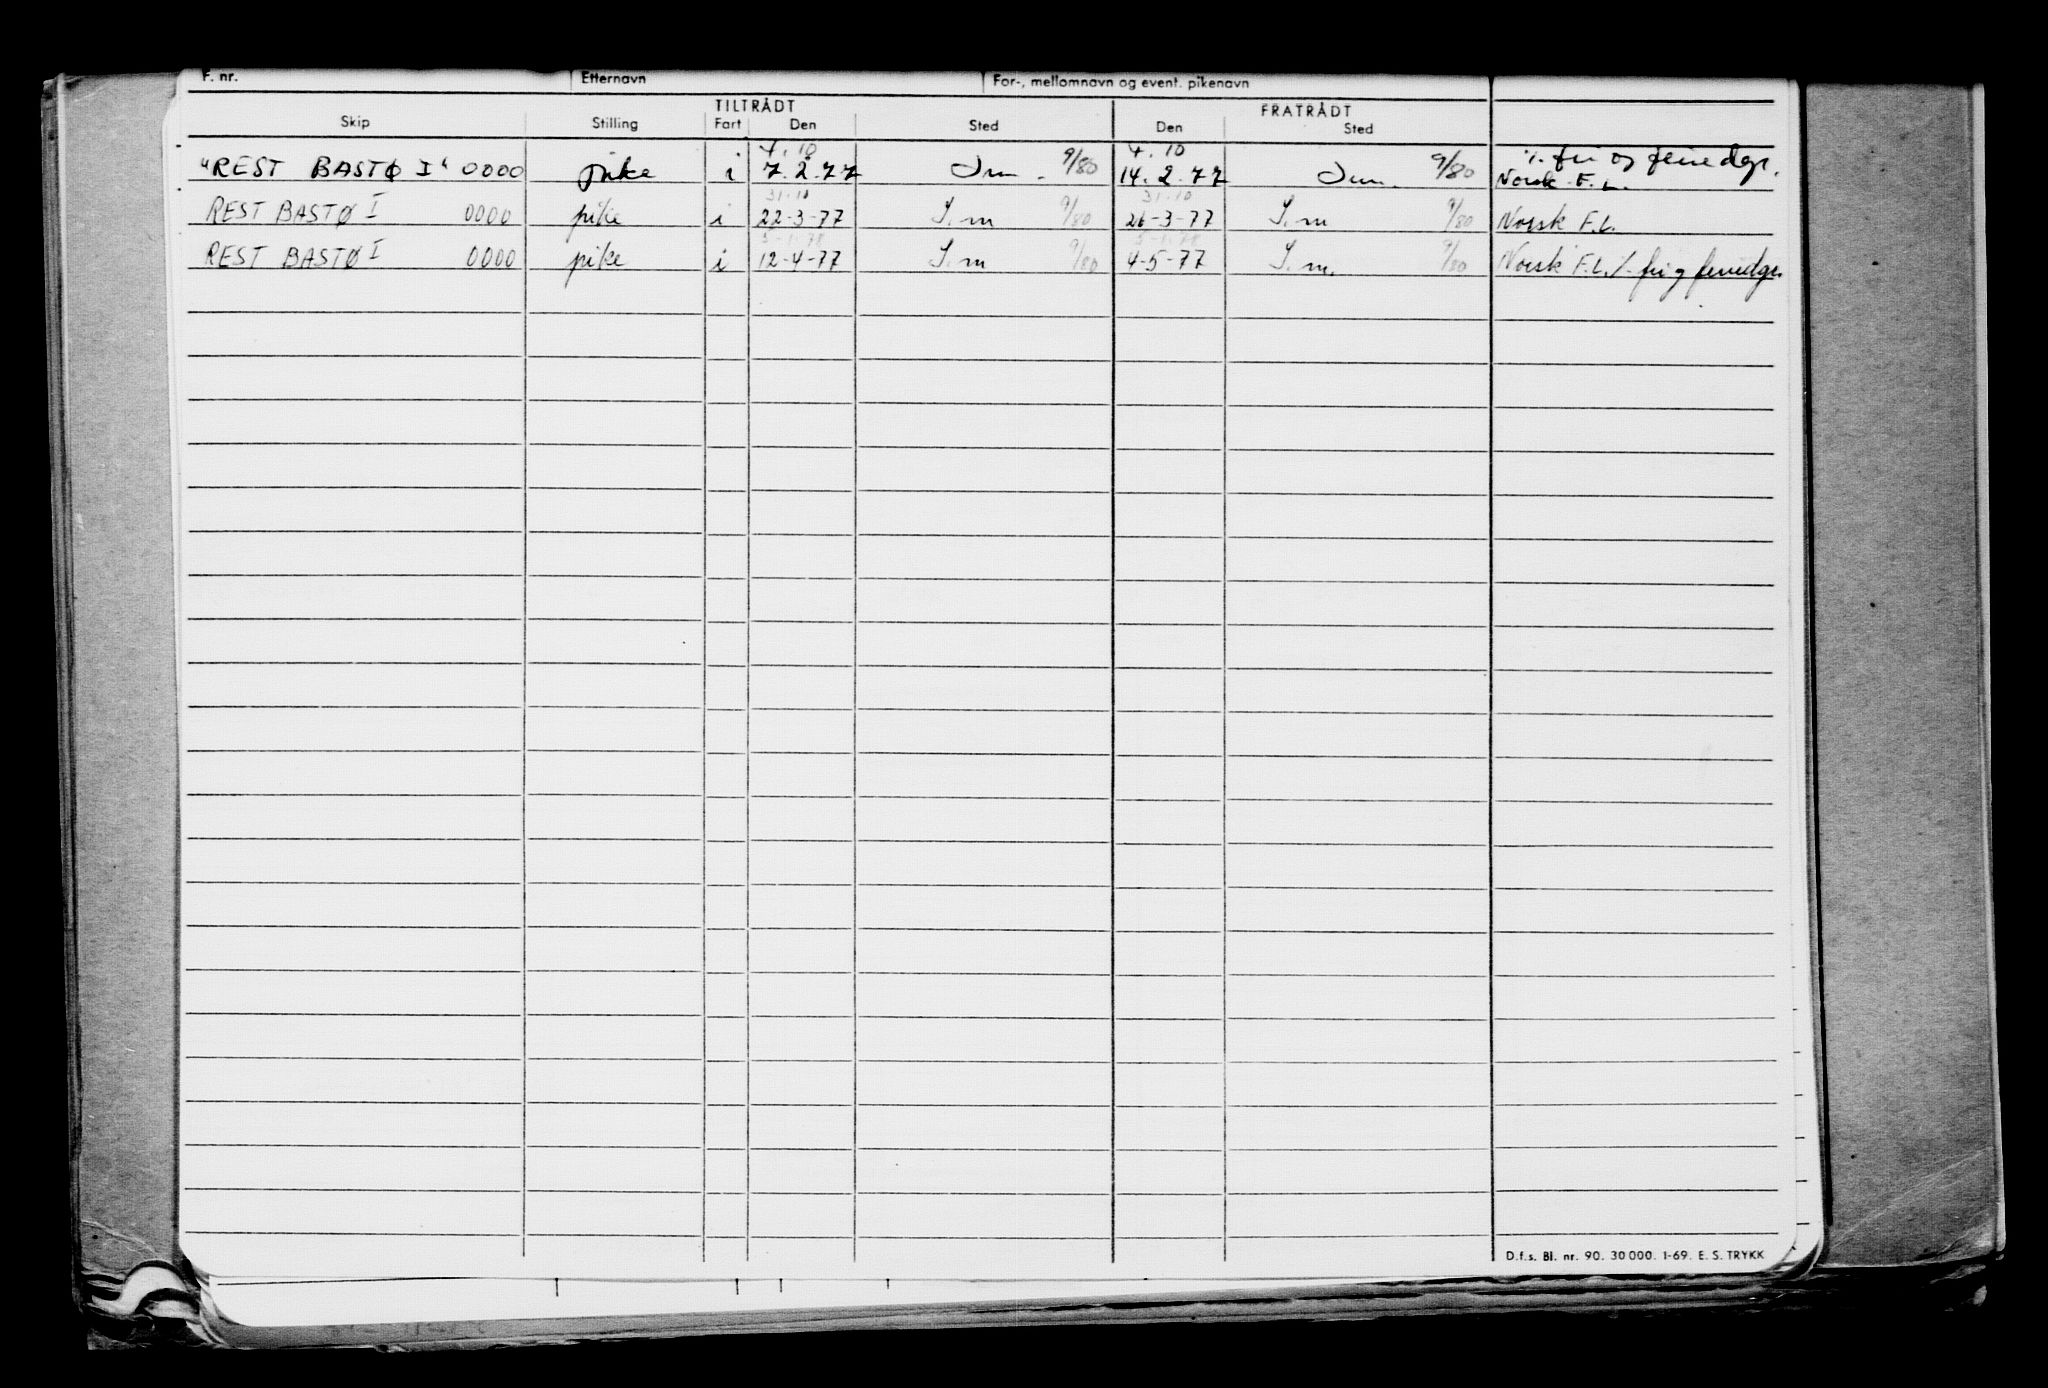 F. nr. Etternavn For-, mellomnavn og event. pikenavn
TILTRÅDT FRATRÅDT
Skip Stilling Fart Den Sted Den Sted
4.10 4.10 ⁒ fri og feriedgr.
"REST BASTØ I" 0000 pike i 7.2.77 9/80 14.2.77 9/80 Norsk F.L.
31.10 31.10
REST BASTØ I 0000 pike i 22-3-77 S.m 9/80 26-3-77 S.m 9/80 Norsk F.L.
5-1-78 5-1-78
REST BASTØ I 0000 pike i 12-4-77 S.m 9/80 4-5-77 S.m. 9/80 Norsk F.L. /. fri og feriedgr.
D.f.s. Bl. nr. 90. 30 000. 1-69. E. S. TRYKK